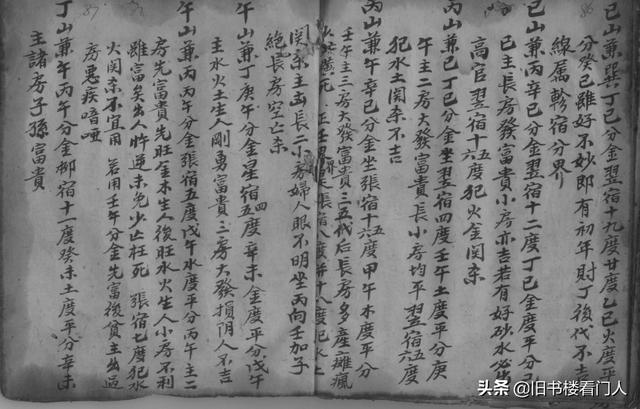 巳山兼巽丁巳分金翌宿十九度廿度乙巳火度平分
分癸巳雖好不妙即有初年財丁後代不吉
線属軫宿分界
巳山兼丙辛巳分金翌宿十二度丁巳金度平分
巳主長房發富貴小房亦吉若有好砂水必出
高官翌宿十五六度犯火金関杀
丙山兼巳丁巳分金坐翌宿四度壬午土度平分庚
午主二房大發富貴長小房均平翌宿五六度
犯水土関杀不吉
丙山兼午辛巳分金坐張宿十五六度甲午木度平分
壬午主三房大發富貴三五代后長房多產癱瘋
関杀主凶長二小房婦人眼不明坐丙向壬加子
絶長房空亡杀
午山兼丁庚午分金星宿四度辛未金度平分戊午
主水火土生人剛勇富貴三房大發損阴人不吉
午山兼丙丙午分金張宿五度戊午水度平分丙午主二
房先富貴先旺金木生人後旺水火生人小房不利
雖富矣出人忤逆未免少亡枉死 張宿七度犯水
火関杀不宜用 若用壬午分金先富後貧主出過
房惡疾喑啞
丁山兼午丙午分金柳宿十一度癸未土度平分辛未
主諸房子孫富貴
头条 @旧书楼看门人